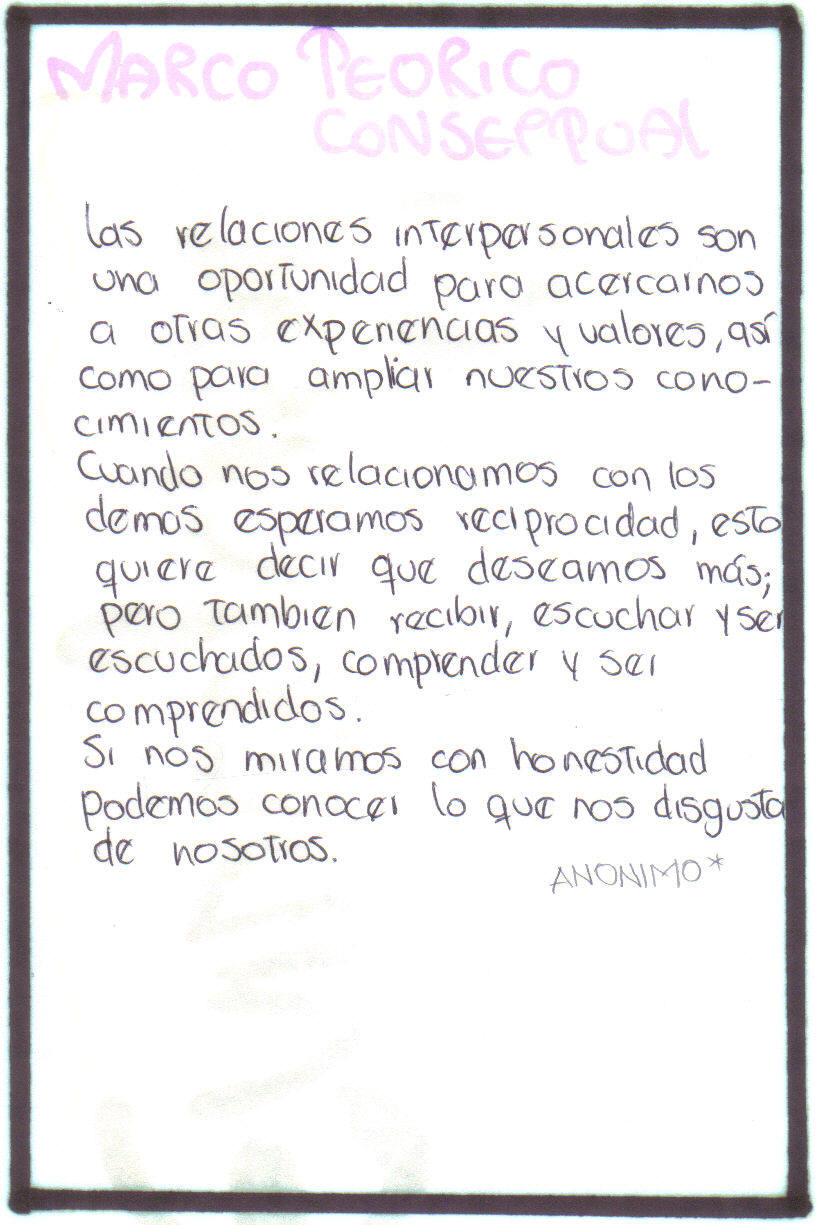 MARCO TEORICO
CONSEPTUAL
las relaciones interpersonales son
una oportunidad para acercarnos
a otras experiencias y valores, así
como para ampliar nuestros cono-
cimientos.
Cuando nos relacionamos con los
demas esperamos reciprocidad, esto
quiere decir que deseamos más;
pero tambien recibir, escuchar y ser
escuchados, comprender y ser
comprendidos.
Si nos miramos con honestidad
podemos conocer lo que nos disgusta
de nosotros.
ANONIMO*